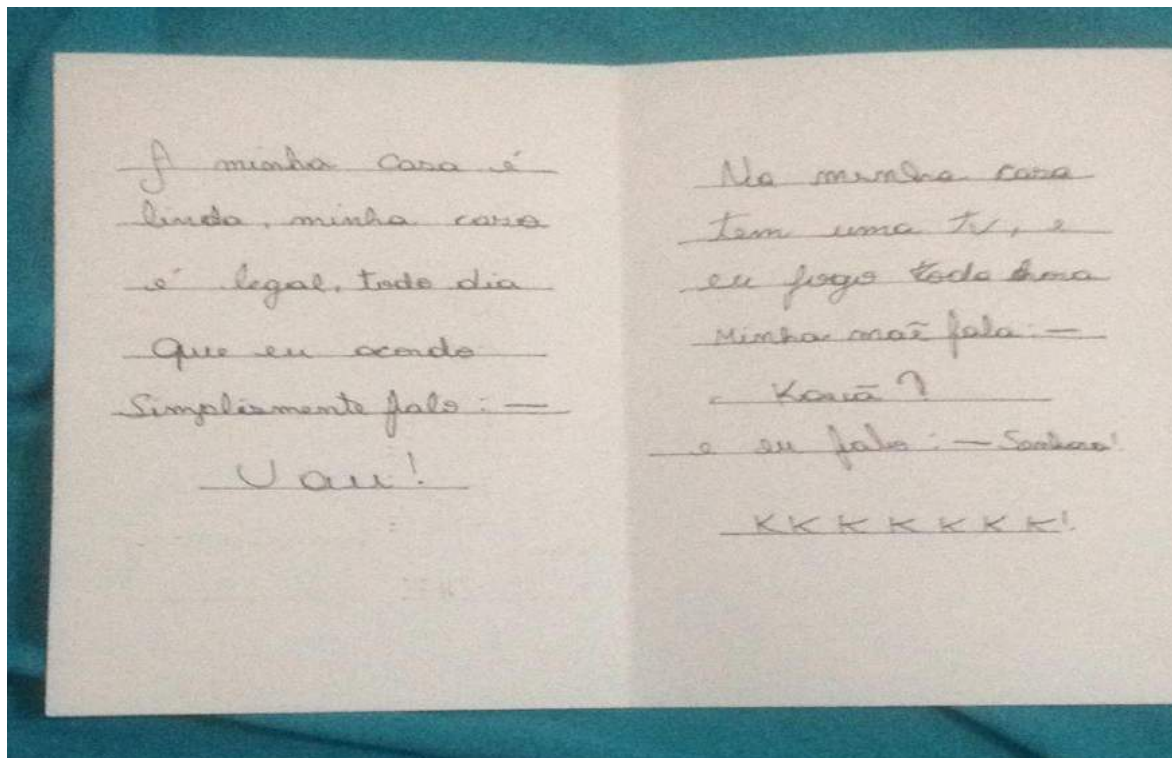 A minha casa é
linda, minha casa
é legal, todo dia
Que eu acordo
Simplismente falo: —
Uau!
Na minha casa
tem uma tv, e
eu jogo toda hora
Minha maẽ fala: —
Kauã?
e eu falo: — Senhora!
KKKKKKK!